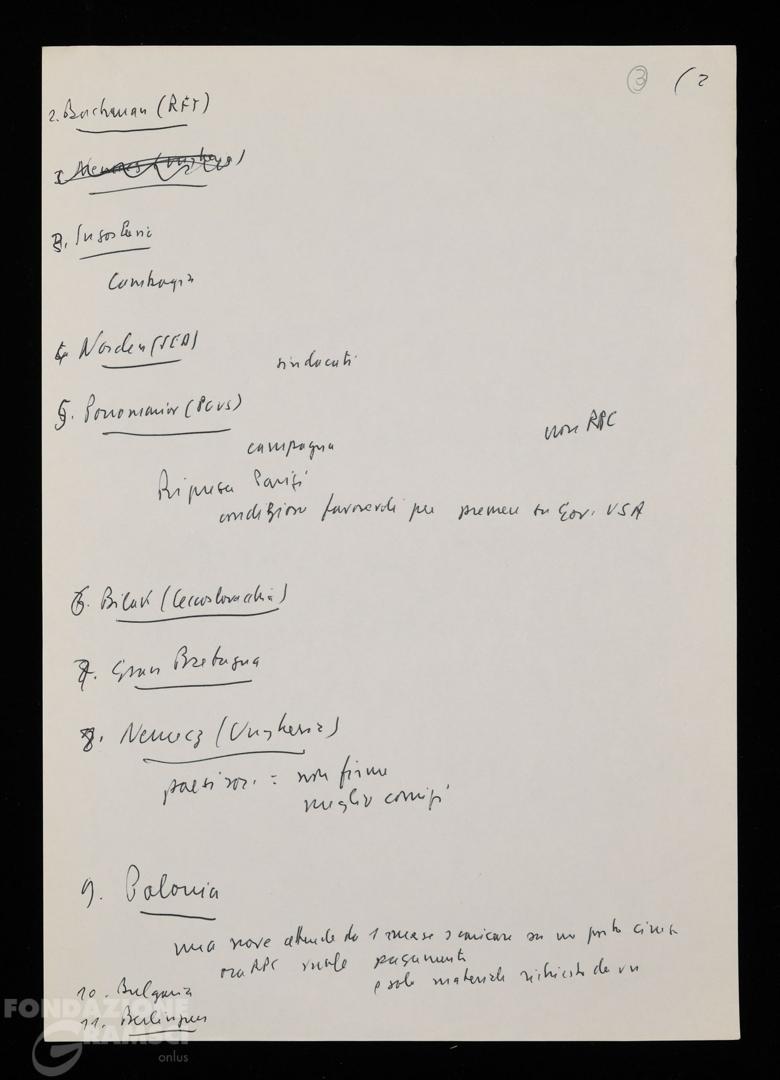 3 (2
2. Bachman (RFT)
3. Nemes (Ungheria)
3. Jugoslavia
Cambogia
4. Norden (SED)
sindacati
5. Ponomariov (PCUS)
non RPC
campagna
Ripresa Parigi
condizioni favorevoli per premere su Gov. USA
6. Bilak (Cecoslovacchia)
7. Gran Bretagna
8. Nemecz (Ungheria)
paesi soz. = non firme
meglio comizi
9. Polonia
una nave attende da 1 mese scaricare su un porto cinese
ora RPC vuole pagamento
e solo materiale richiesto da vn
10. Bulgaria
11. Berlinguer
FONDAZIONE
GRAMSCI
onlus